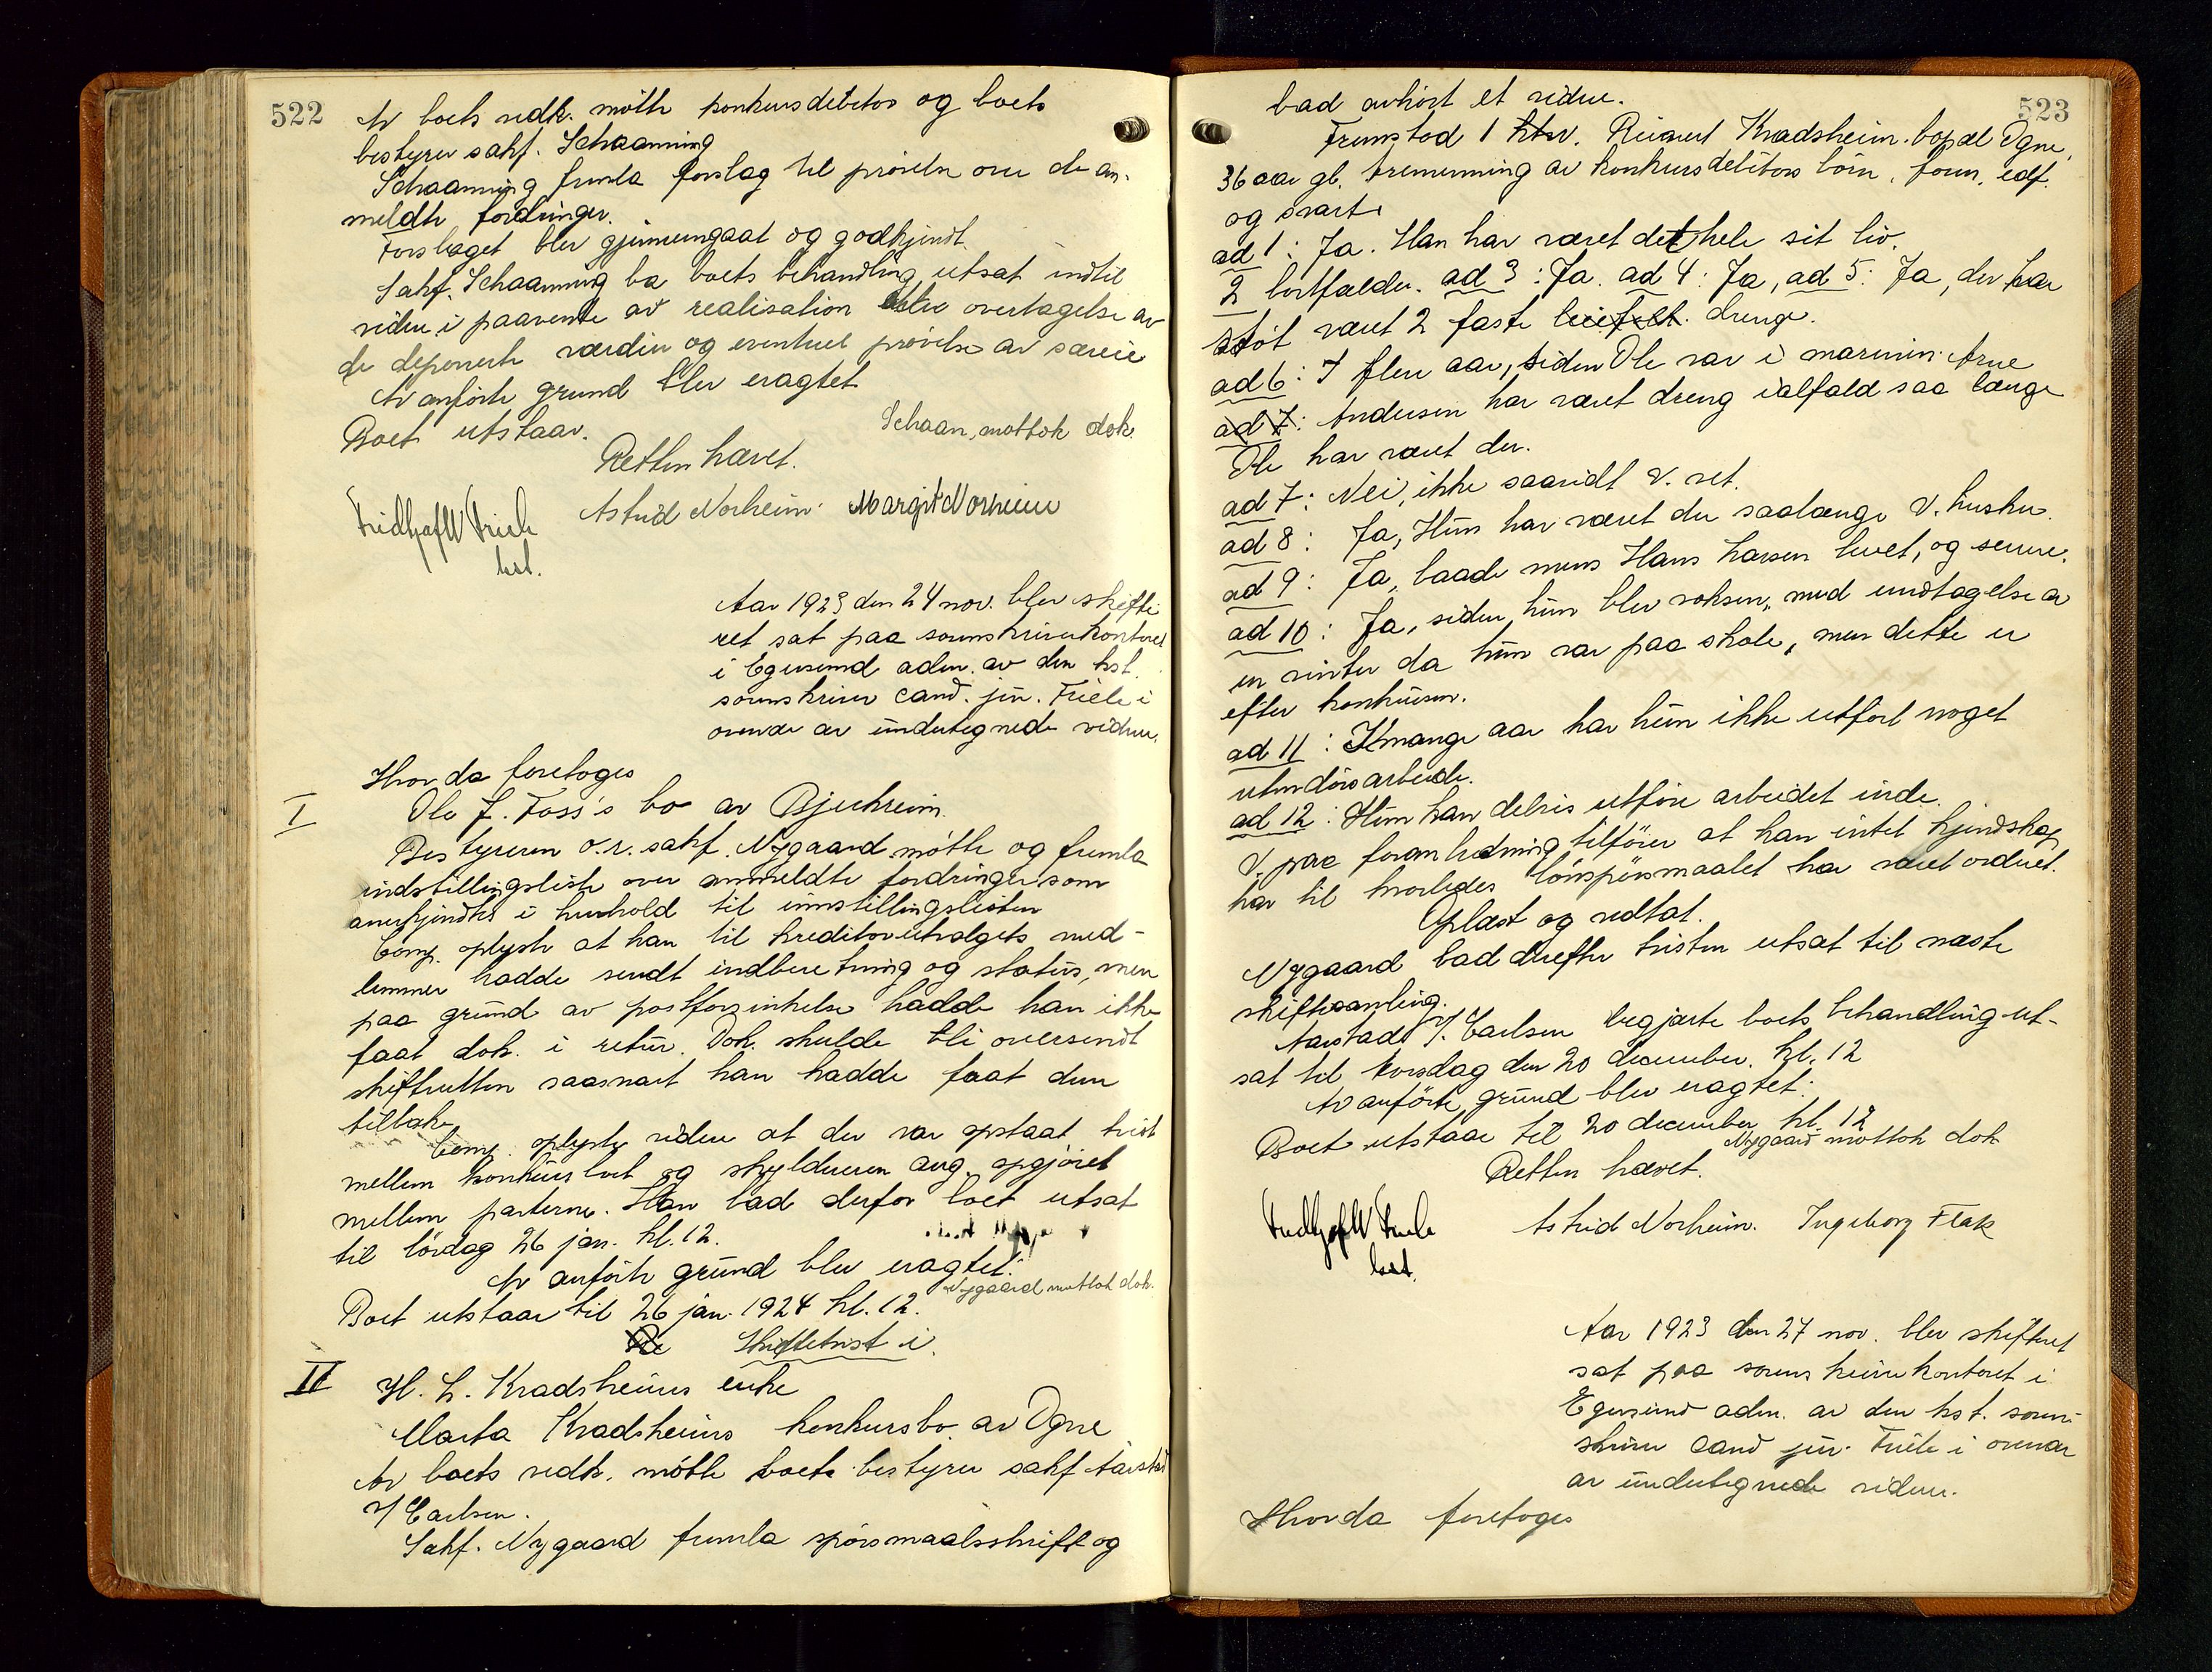 522
Av boets vedk. møtte konkursdebitor og boets
bestyrer sakf. Schaanning
Schaanning fremla forslag til prøvelse over de an-
meldte fordringer.
Forslaget blev gjennemgaat og godkjendt.
Sakf. Schaanning ba boets behandling utsat indtil
videre i paavente av realisation eller overtagelse av
de deponerte værdier og eventuel prøvelse av særeie
Av anførte grund blev eragtet
Boet utstaar.
Schaan. mottok dok.
Retten hævet.
Fridtjof W Friele
kst.
Astrid Norheim. Margit Norheim
Aar 1923 den 24 nov. blev skifte-
ret sat paa sorenskriverkontoret
i Egersund adm. av den kst.
sorenskriver cand. jur. Friele i
overvær av undertegnede vidner.
Hvor da foretoges
I
Ole J. Foss's bo av Bjerkreim.
Bestyreren o.r. sakf. Nygaard møtte og fremla
indstillingsliste over anmeldte fordringer som
anerkjendtes i henhold til innstillingslisten
Comp. oplyste at han til kreditorutvalgets med-
lemmer hadde sendt indberetning og status, men
paa grund av postforsinkelse hadde han ikke
faat dok. i retur. Dok. skulde bli oversendt
skifteretten saasnart han hadde faat dem
tilbake
Comp. oplyste videre at der var opstaat tvist
mellem konkursboet og skylderen ang. opgjøret
mellem parterne. Han bad derfor boet utsat
til lørdag 26 jan. kl. 12.
Av anførte grund blev eragtet:
Nygaard mottok dok.
Boet utstaar til 26 jan. 1924 kl. 12.
Re Skiftetvist i
II
H. L. Kvadsheims enke
Marta Kvadsheims konkursbo av Ogne
Av boets vedk. møtte boets bestyrer sakf Aarstad
v/ Carlsen.
Sakf. Nygaard fremla spørsmaalsskrift og
523
bad avhørt et vidne.
Fremstod 1 Reinert Kvadsheim. bopæl Ogne,
36 aar gl. tremenning av konkursdebitors børn, form. edf.
og svarte
ad 1: Ja. Han har været det hele sit liv.
2 bortfalder. ad 3: Ja. ad 4: Ja, ad 5: Ja, der har
støt været 2 faste drenge.
ad 6: I flere aar, siden Ole var i marinen. Arne
ad 7: Andersen har været dreng ialfald saa længe
Ole har været der.
ad 7: Nei, ikke saavidt V. vet.
ad 8: Ja, Hun har været der saalænge V. husker.
ad 9: Ja, baade mens Hans Larsen levet, og senere.
ad 10: Ja, siden hun blev voksen, med undtagelse av
en vinter da hun var paa skole, men dette er
efter konkursen.
ad 11: I mange aar har hun ikke utført noget
utendørsarbeide.
ad 12: Hun kan delvis utføre arbeidet inde.
V. paa foranledning tilføier at han intet kjendskap
har til hvorledes lønspørsmaalet har været ordnet.
Oplæst og vedtat.
Nygaard bad derefter tvisten utsat til næste
skiftesamling.
Aarstad v/ Carlsen begjærte boets behandling ut-
sat til torsdag den 20 december. kl. 12
Av anførte grund blev eragtet:
Boet utstaar til 20 december kl. 12
Nygaard mottok dok
Retten hævet.
Fridtjof W Friele
kst.
Astrid Norheim. Ingeborg Fl
Aar 1923 den 27 nov. blev skifteret
sat paa sorenskriverkontoret i
Egersund adm. av den kst. soren-
skriver cand jur. Friele i overvær
av undertegnede vidner.
Hvorda foretoges